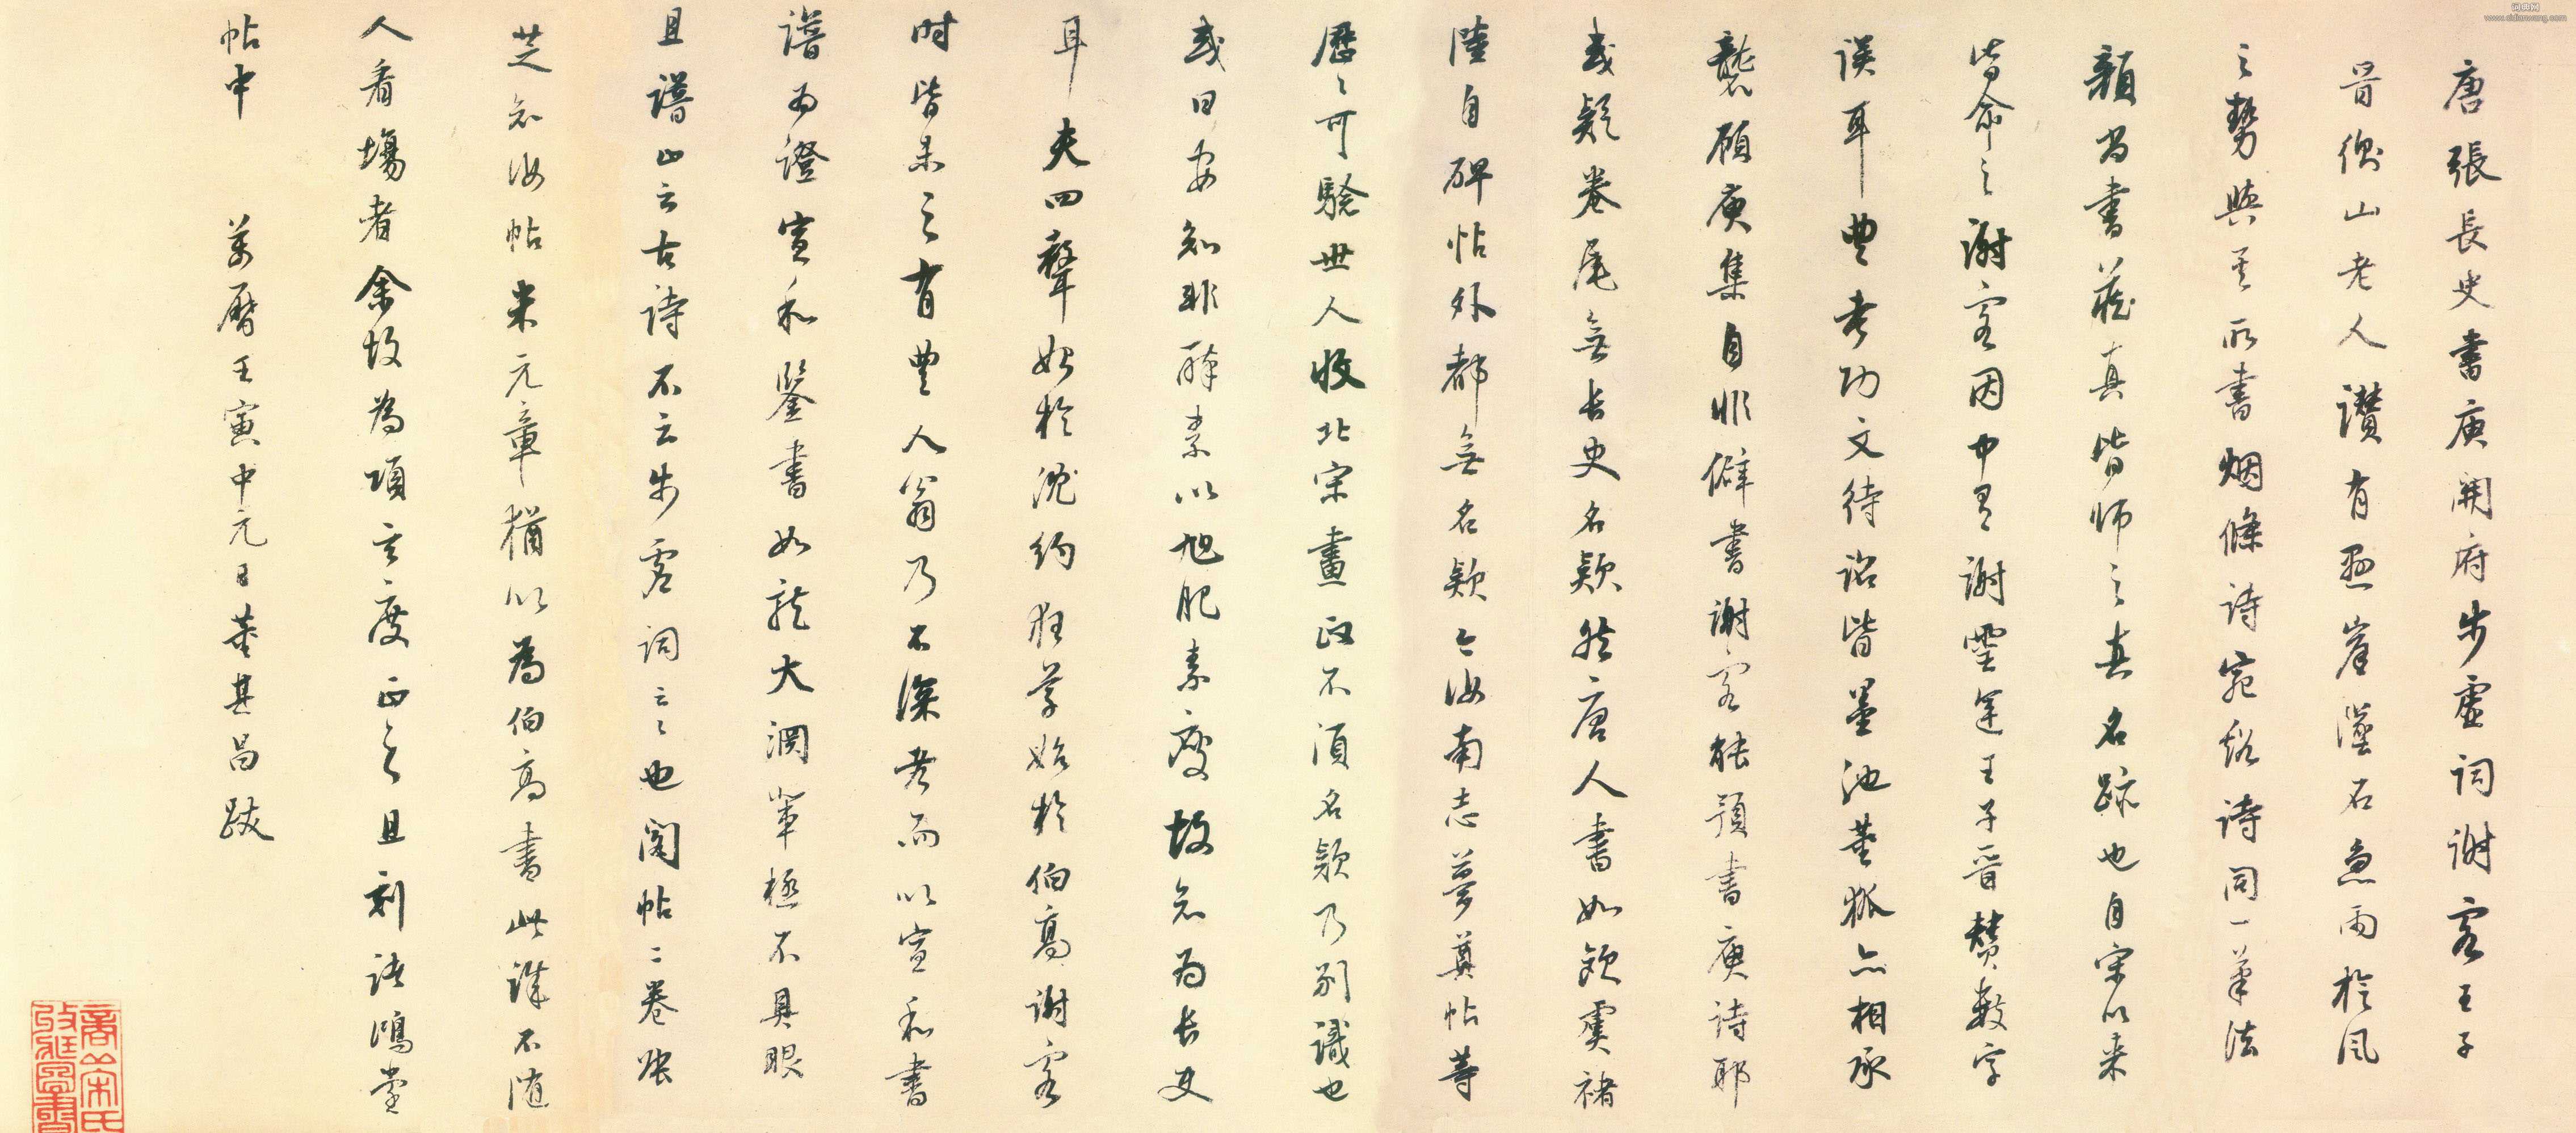 唐張長史書庾開府步虛詞謝客王子
晉衡山老人讚有懸崖墜石急雨旋風
之勢與其所書烟條詩宛谿詩同一筆法
顏尚書藏真皆師之真名跡也自宋以来
皆命之謝客因中有謝靈運王子晉贊數字
誤耳豐考功文待詔皆墨池董狐亦相承
襲顧庾集自非僻書謝客能預書庾詩耶
或疑卷尾無長史名款然唐人書如欧虞褚
陸自碑帖外都無名款今汝南志夢奠帖等
歷之可驗世人收北宋畫政不須名款乃別識也
或曰安知非醉素以旭肥素瘦故知為長史
耳夫四聲始於沈約狂草始於伯高謝客
時皆未之有豐人翁乃不深考而以宣和書
譜為證宣和鑒書如龍大淵輩極不具眼
且譜止云古詩不云步虛詞云云也閣帖二卷張
芝知汝帖米元章猶以為伯高書此誰不隨
人看場者余故為項玄度正之且刻諸鴻堂
帖中　萬曆壬寅中元日董其昌跋
詞典网
www.cidianwang.com